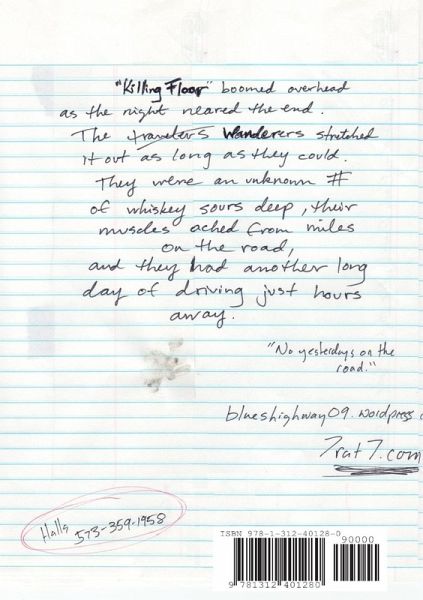 "Killing Floor" boomed overhead
as the night neared the end.
The travelers Wanderers stretched
it out as long as they could.
They were an unknown #
of whiskey sours deep, their
muscles ached from miles
on the road,
and they had another long
day of driving just hours
away.
"No yesterdays on the
road."
blueshighway09.wordpress.c
7rat7.com
Halls 573-359-1958
ISBN 978-1-312-40128-0
90000
9 781312 401280